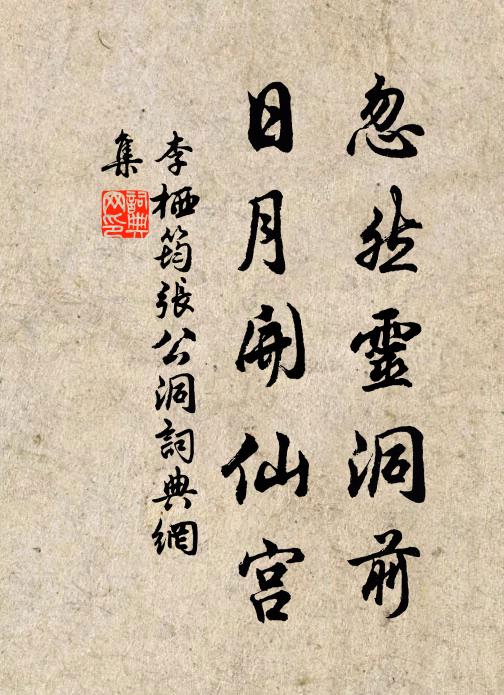 忽然靈洞前
日月開仙宮
李栖筠張公洞詞典網
集
詞典网印